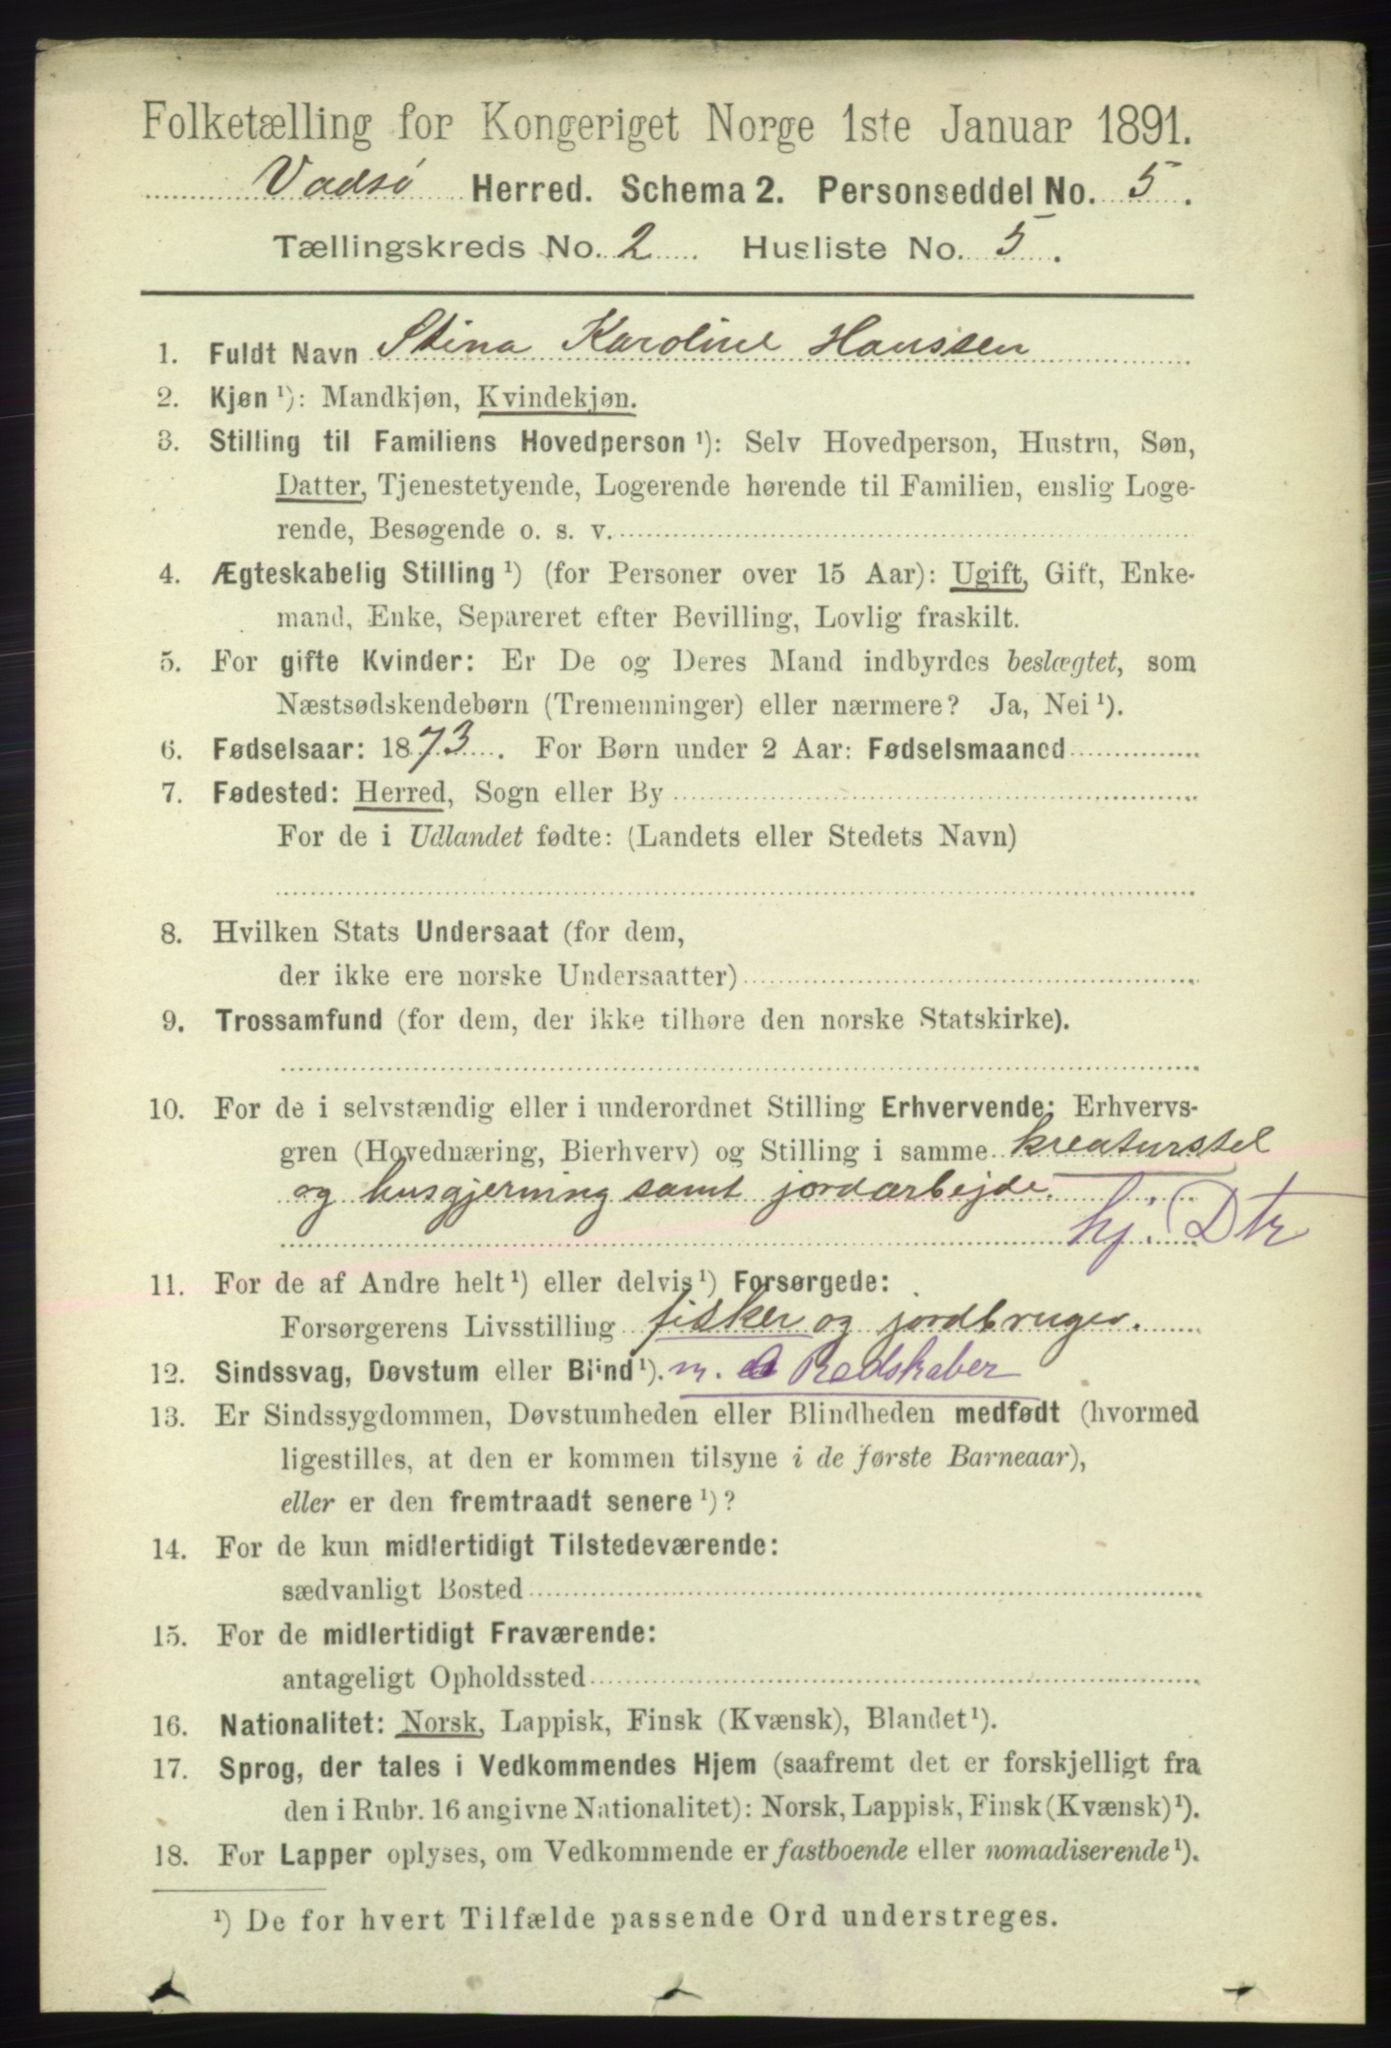 Folketælling for Kongeriget Norge 1ste Januar 1891.
Vadsø Herred. Schema 2. Personseddel No. 5.
Tællingskreds No. 2 Husliste No. 5.
1. Fuldt Navn Stina Karoline Hanssen
2. Kjøn ¹): Mandkjøn, Kvindekjøn.
3. Stilling til Familiens Hovedperson ¹): Selv Hovedperson, Hustru, Søn,
Datter, Tjenestetyende, Logerende hørende til Familien, enslig Loge-
rende, Besøgende o. s. v.
4. Ægteskabelig Stilling ¹) (for Personer over 15 Aar): Ugift, Gift, Enke-
mand, Enke, Separeret efter Bevilling, Lovlig fraskilt.
5. For gifte Kvinder: Er De og Deres Mand indbyrdes beslægtet, som
Næstsødskendebørn (Tremenninger) eller nærmere? Ja, Nei ¹).
6. Fødselsaar: 1873. For Børn under 2 Aar: Fødselsmaaned
7. Fødested: Herred, Sogn eller By
For de i Udlandet fødte: (Landets eller Stedets Navn)
8. Hvilken Stats Undersaat (for dem,
der ikke ere norske Undersaatter)
9. Trossamfund (for dem, der ikke tilhøre den norske Statskirke).
10. For de i selvstændig eller i underordnet Stilling Erhvervende: Erhvervs-
gren (Hovednæring, Bierhverv) og Stilling i samme kreaturstel
og husgjerning samt jordarbejde.
hj. Dtr
11. For de af Andre helt ¹) eller delvis ¹) Forsørgede:
Forsørgerens Livsstilling fisker og jordbruger.
12. Sindssvag, Døvstum eller Blind ¹). m. Redskaber
13. Er Sindssygdommen, Døvstumheden eller Blindheden medfødt (hvormed
ligestilles, at den er kommen tilsyne i de første Barneaar),
eller er den fremtraadt senere ¹)?
14. For de kun midlertidigt Tilstedeværende:
sædvanligt Bosted
15. For de midlertidigt Fraværende:
antageligt Opholdssted
16. Nationalitet: Norsk, Lappisk, Finsk (Kvænsk), Blandet ¹).
17. Sprog, der tales i Vedkommendes Hjem (saafremt det er forskjelligt fra
den i Rubr. 16 angivne Nationalitet): Norsk, Lappisk, Finsk (Kvænsk) ¹).
18. For Lapper oplyses, om Vedkommende er fastboende eller nomadiserende ¹).
¹) De for hvert Tilfælde passende Ord understreges.